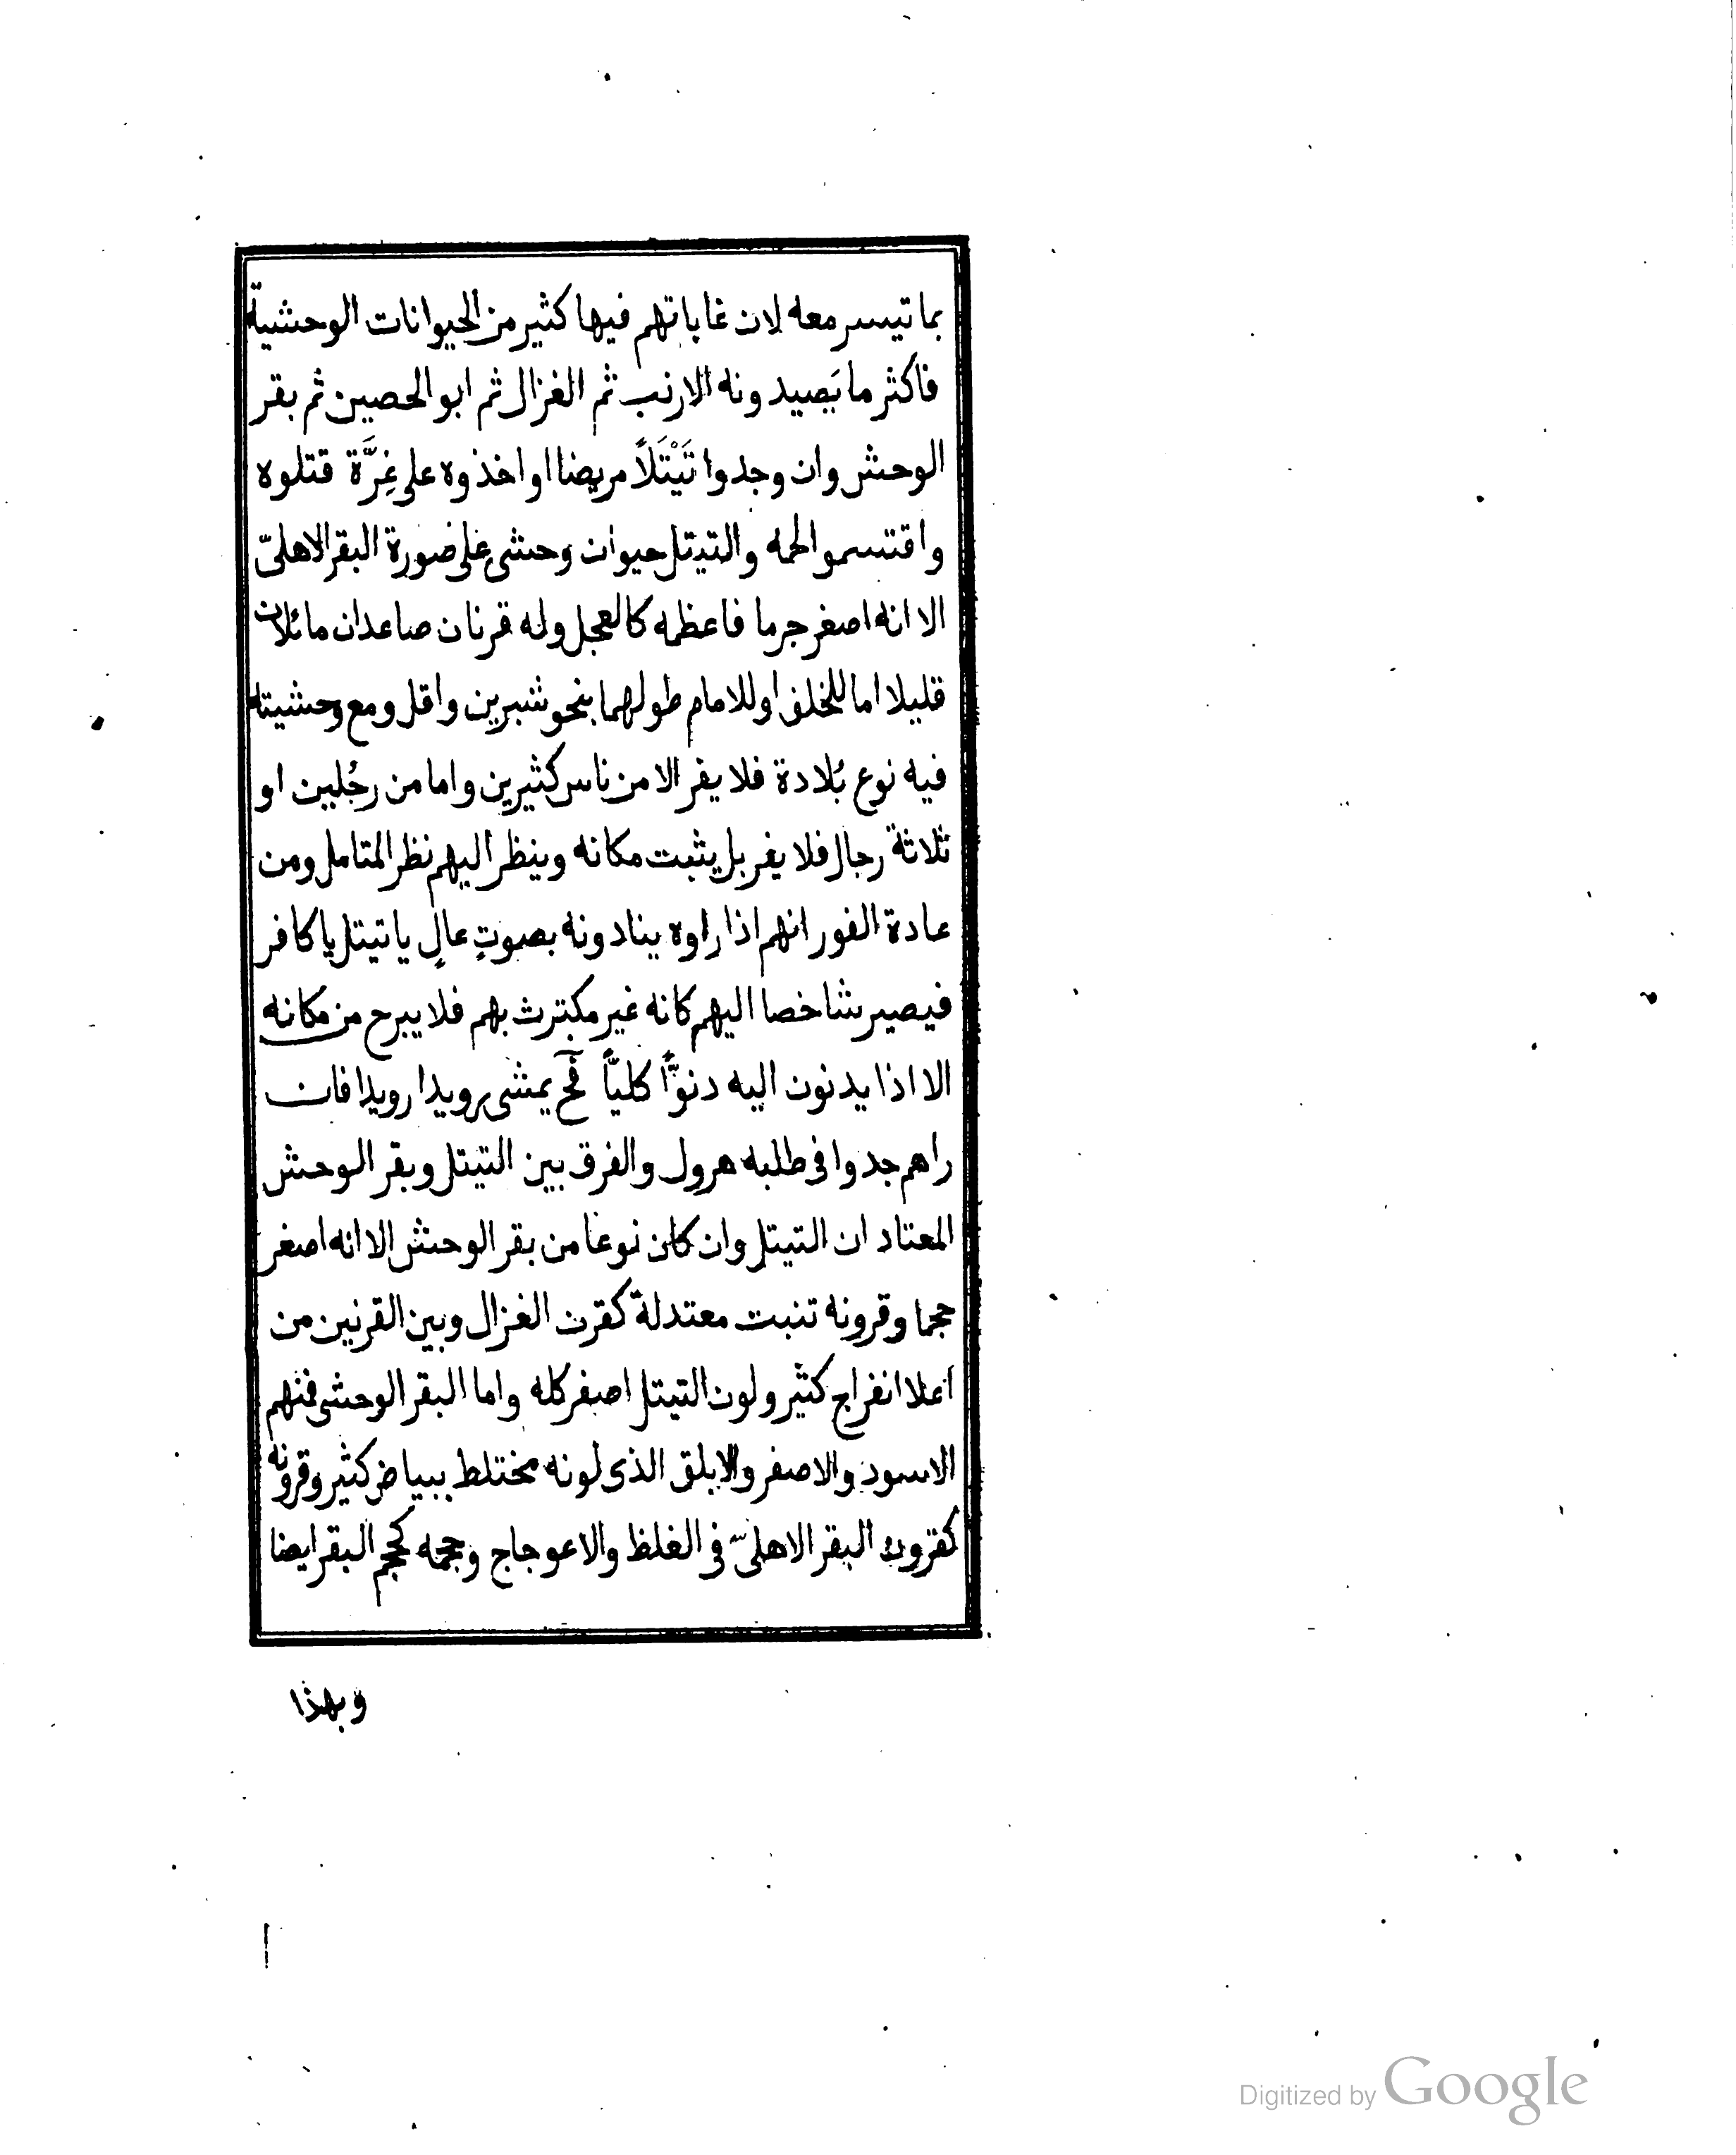 بما تيسر معه لان غاباتهم فيها كثير من الحيوانات الوحشيّة
فاكثر ما يَصيدونه الارنب ثم الغزال ثم ابو الحصين ثم بقر
الوحش وان وجدوا تَيْتَلًا مريضا او اخذوه على غِرَّة قتلوه
واقتسموا لحمه والتيتل حيوان وحشى على صورة البقر الاهلىّ
الا انه اصغر جرما فاعظمه كالعجل وله قرنان صاعدان مائلان
قليلا اما للخلف او للامام طولهما بنحو شبرين واقل ومع وحشيته
فيه نوع بُلادة فلا يفر الا من ناس كثيرين واما من رجُلين او
ثلاثة رجال فلا يفر بل يثبت مكانه وينظر اليهم نظر المتامل ومن
عادة الفور انهم اذا راوه ينادونه بصوتٍ عالٍ يا تيتل يا كافر
فيصير شاخصا اليهم كانه غير مكترث بهم فلا يبرح من مكانه
الا اذا يدنون اليه دنوًّا كليًّا فح يمشى رويدا رويدا فان
راهم جدوا فى طلبه هرول والفرق بين التيتل وبقر الوحش
المعتاد ان التيتل وان كان نوعا من بقر الوحش الا انه اصغر
حجما وقرونه تنبت معتدلة كقرن الغزال وبين القرنين من
اعلا انفراج كثير ولون التيتل اصفر كله واما البقر الوحشى فمنهم
الاسود والاصفر والابلق الذى لونه مختلط ببياض كثير وقرونه
كقرون البقر الاهلىّ فى الغلظ والاعوجاج وحجمه كحجم البقر ايضا
وبهذا
Digitized by Google